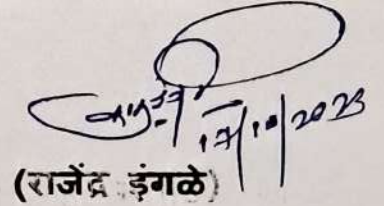 17/10/2023
(राजेंद्र इंगळे)